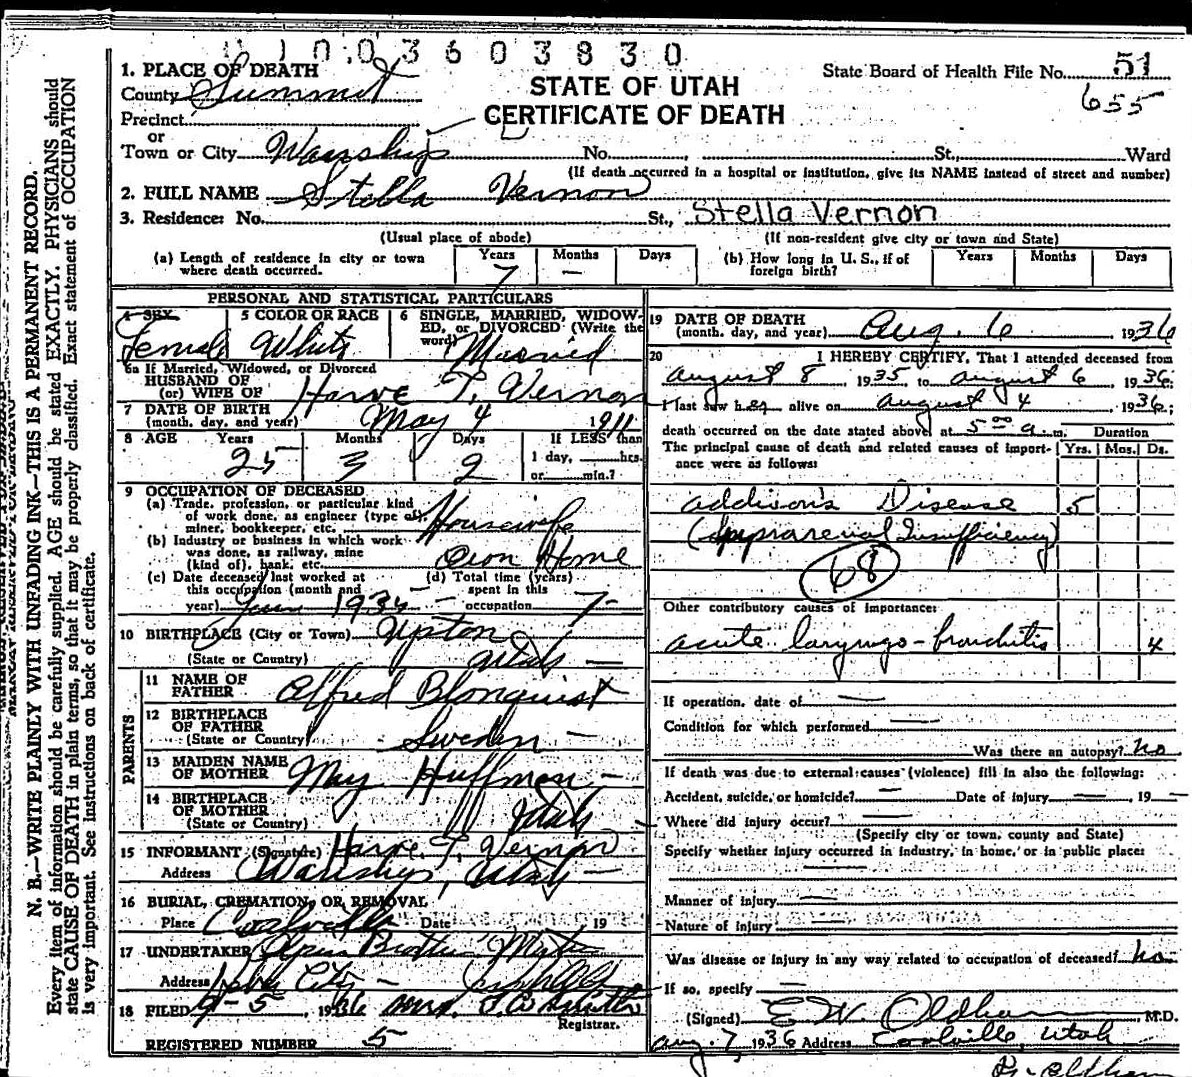 0 1 0 0 3 6 0 3 8 3 0
1. PLACE OF DEATH
County Summit
Precinct
or
Town or City Wanship No. , St., Ward
(If death occurred in a hospital or institution, give its NAME instead of street and number)
STATE OF UTAH
CERTIFICATE OF DEATH
State Board of Health File No. 51
655
2. FULL NAME Stella Vernon
3. Residence: No. St., Stella Vernon
(Usual place of abode) (If non-resident give city or town and State)
(a) Length of residence in city or town where death occurred. Years 7 Months — Days
(b) How long in U. S., if of foreign birth? Years Months Days
PERSONAL AND STATISTICAL PARTICULARS
4 SEX Female
5 COLOR OR RACE White
6 SINGLE, MARRIED, WIDOWED, or DIVORCED (Write the word) Married
6a If Married, Widowed, or Divorced
HUSBAND OF
(or) WIFE OF Harve T. Vernon
7 DATE OF BIRTH
(month, day, and year) May 4 1911
8 AGE Years 25 Months 3 Days 2 If LESS than
1 day, hrs.
or min.?
9 OCCUPATION OF DECEASED
(a) Trade, profession, or particular kind
of work done, as engineer (type of),
miner, bookkeeper, etc. Housewife
(b) Industry or business in which work
was done, as railway, mine
(kind of), bank, etc. Own Home
(c) Date deceased last worked at
this occupation (month and
year) June 1935 —
(d) Total time (years)
spent in this
occupation 7-
10 BIRTHPLACE (City or Town) Upton
(State or Country) Utah —
PARENTS
11 NAME OF
FATHER Alfred Blonquist
12 BIRTHPLACE
OF FATHER
(State or Country) Sweden —
13 MAIDEN NAME
OF MOTHER May Huffman —
14 BIRTHPLACE
OF MOTHER
(State or Country) Utah —
15 INFORMANT (Signature) Harve T. Vernon
Address Wanship, Utah —
16 BURIAL, CREMATION, OR REMOVAL
Place Coalville Date 19
17 UNDERTAKER
Address City —
18 FILED 9-5, 1936 Mrs.
Registrar.
REGISTERED NUMBER 5
19 DATE OF DEATH
(month, day, and year) Aug. 6 1936
20 I HEREBY CERTIFY, That I attended deceased from
August 8 1935 to August 6, 1936;
I last saw her alive on August 4 1936;
death occurred on the date stated above, at 5 00 a. m. Duration
The principal cause of death and related causes of importance were as follows: Yrs. Mos. Ds.
Addison's Disease 5
(Suprarenal Insufficiency)
68
Other contributory causes of importance:
acute laryngo-bronchitis 4
If operation, date of —
Condition for which performed —
Was there an autopsy? no
If death was due to external causes (violence) fill in also the following:
Accident, suicide, or homicide? — Date of injury —, 19—
Where did injury occur? —
(Specify city or town, county and State)
Specify whether injury occurred in industry, in home, or in public place:
Manner of injury —
Nature of injury
Was disease or injury in any way related to occupation of deceased? no
If so, specify —
(Signed) E. W. Oldham, M.D.
Aug. 7, 1936 Address Coalville, Utah
Oldham
N. B.—WRITE PLAINLY WITH UNFADING INK—THIS IS A PERMANENT RECORD.
Every item of information should be carefully supplied. AGE should be stated EXACTLY. PHYSICIANS should
state CAUSE OF DEATH in plain terms, so that it may be properly classified. Exact statement of OCCUPATION
is very important. See instructions on back of certificate.